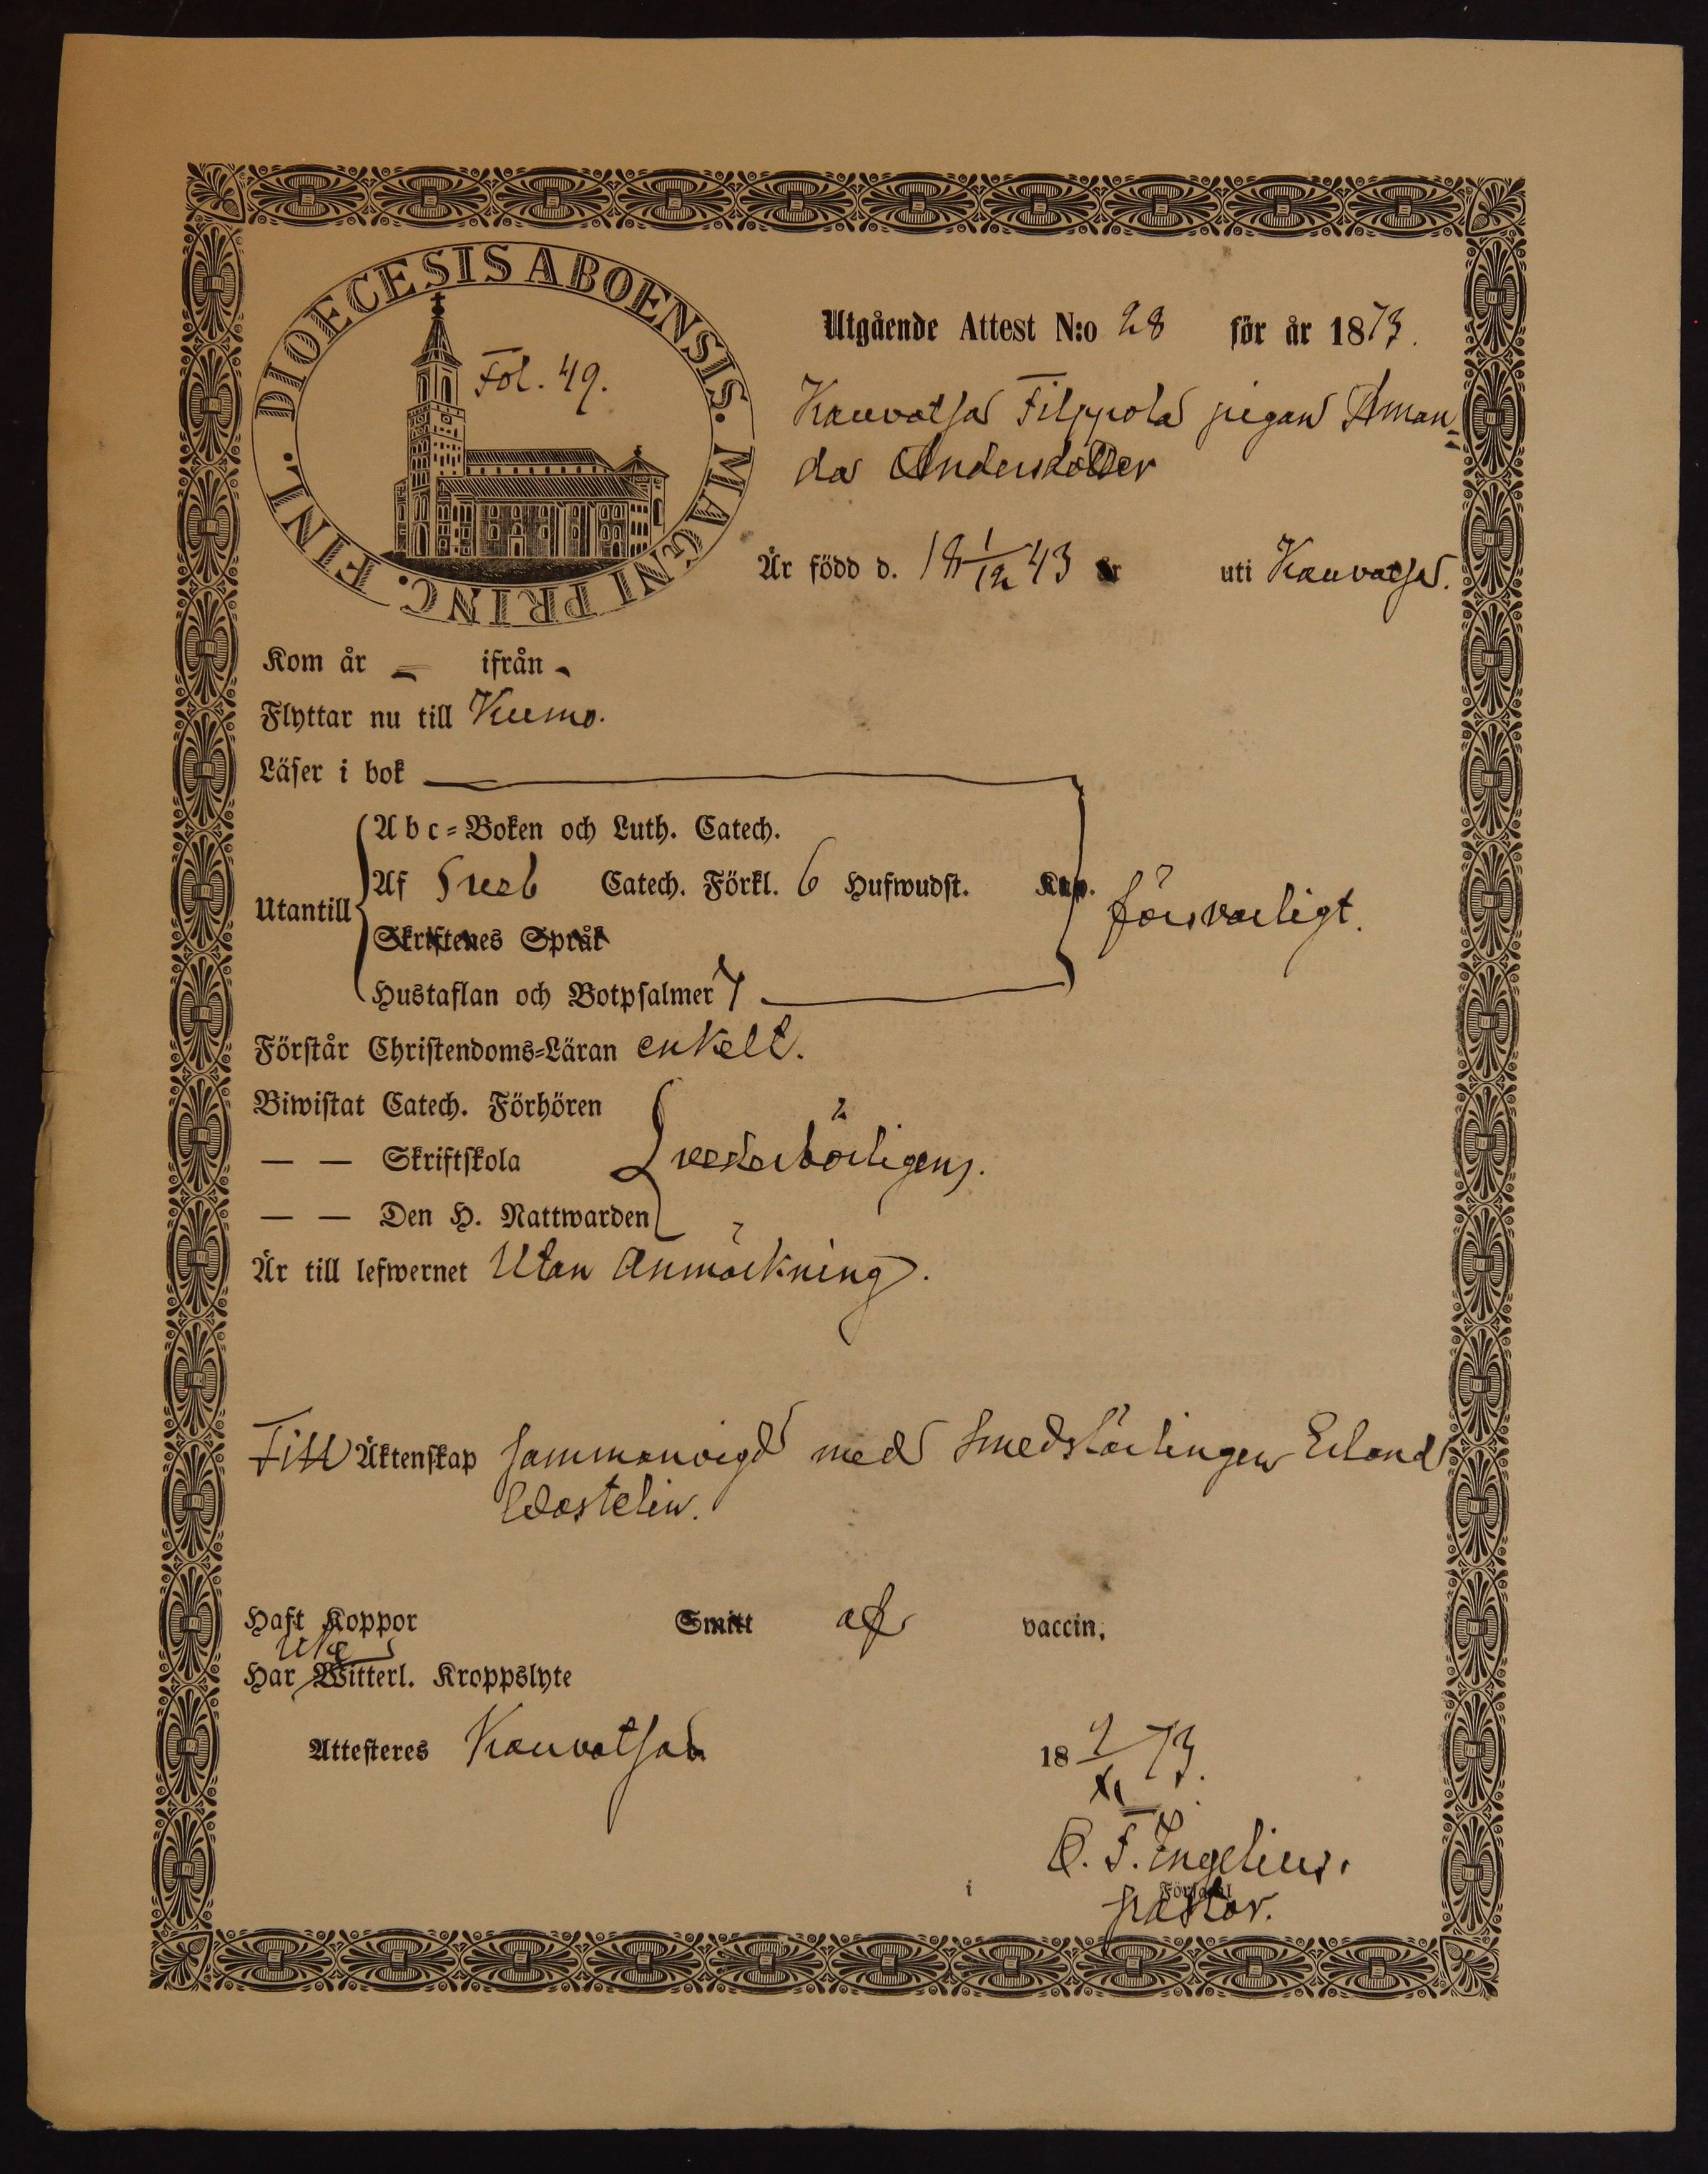 DIOECESIS ABOENSIS. MAGNI PRINC. FINL.
Fol. 49.
Utgående Attest N:o 28 för år 1873.
Kauvatsa Filppola pigan Aman-
da Andersdotter
Är född d. 18 1/12 43 uti Kauvatsa.
Kom år – ifrån –
Flyttar nu till Kumo.
Läser i bok
Abc-Boken och Luth. Catech.
Af Sveb Catech. Förkl. 6 Hufwudst. Kap.
Utantill
försvarligt.
Skriftenes Språk
Hustaflan och Botpsalmer 7
Förstår Christendoms-Läran enkelt.
Biwistat Catech. Förhören
— — Skriftskola vederbörligen.
— — Den H. Nattwarden
Är till lefwernet Utan Anmärkning.
Till Äktenskap sammanvigd med Smedslärlingen Erland
Wastelin.
Haft Koppor Smitt af vaccin.
Har Witterl. Kroppslyte
Attesteres Kauvatsa 18 9/XI 73.
F. Ingelius.
i Församl
pastor.